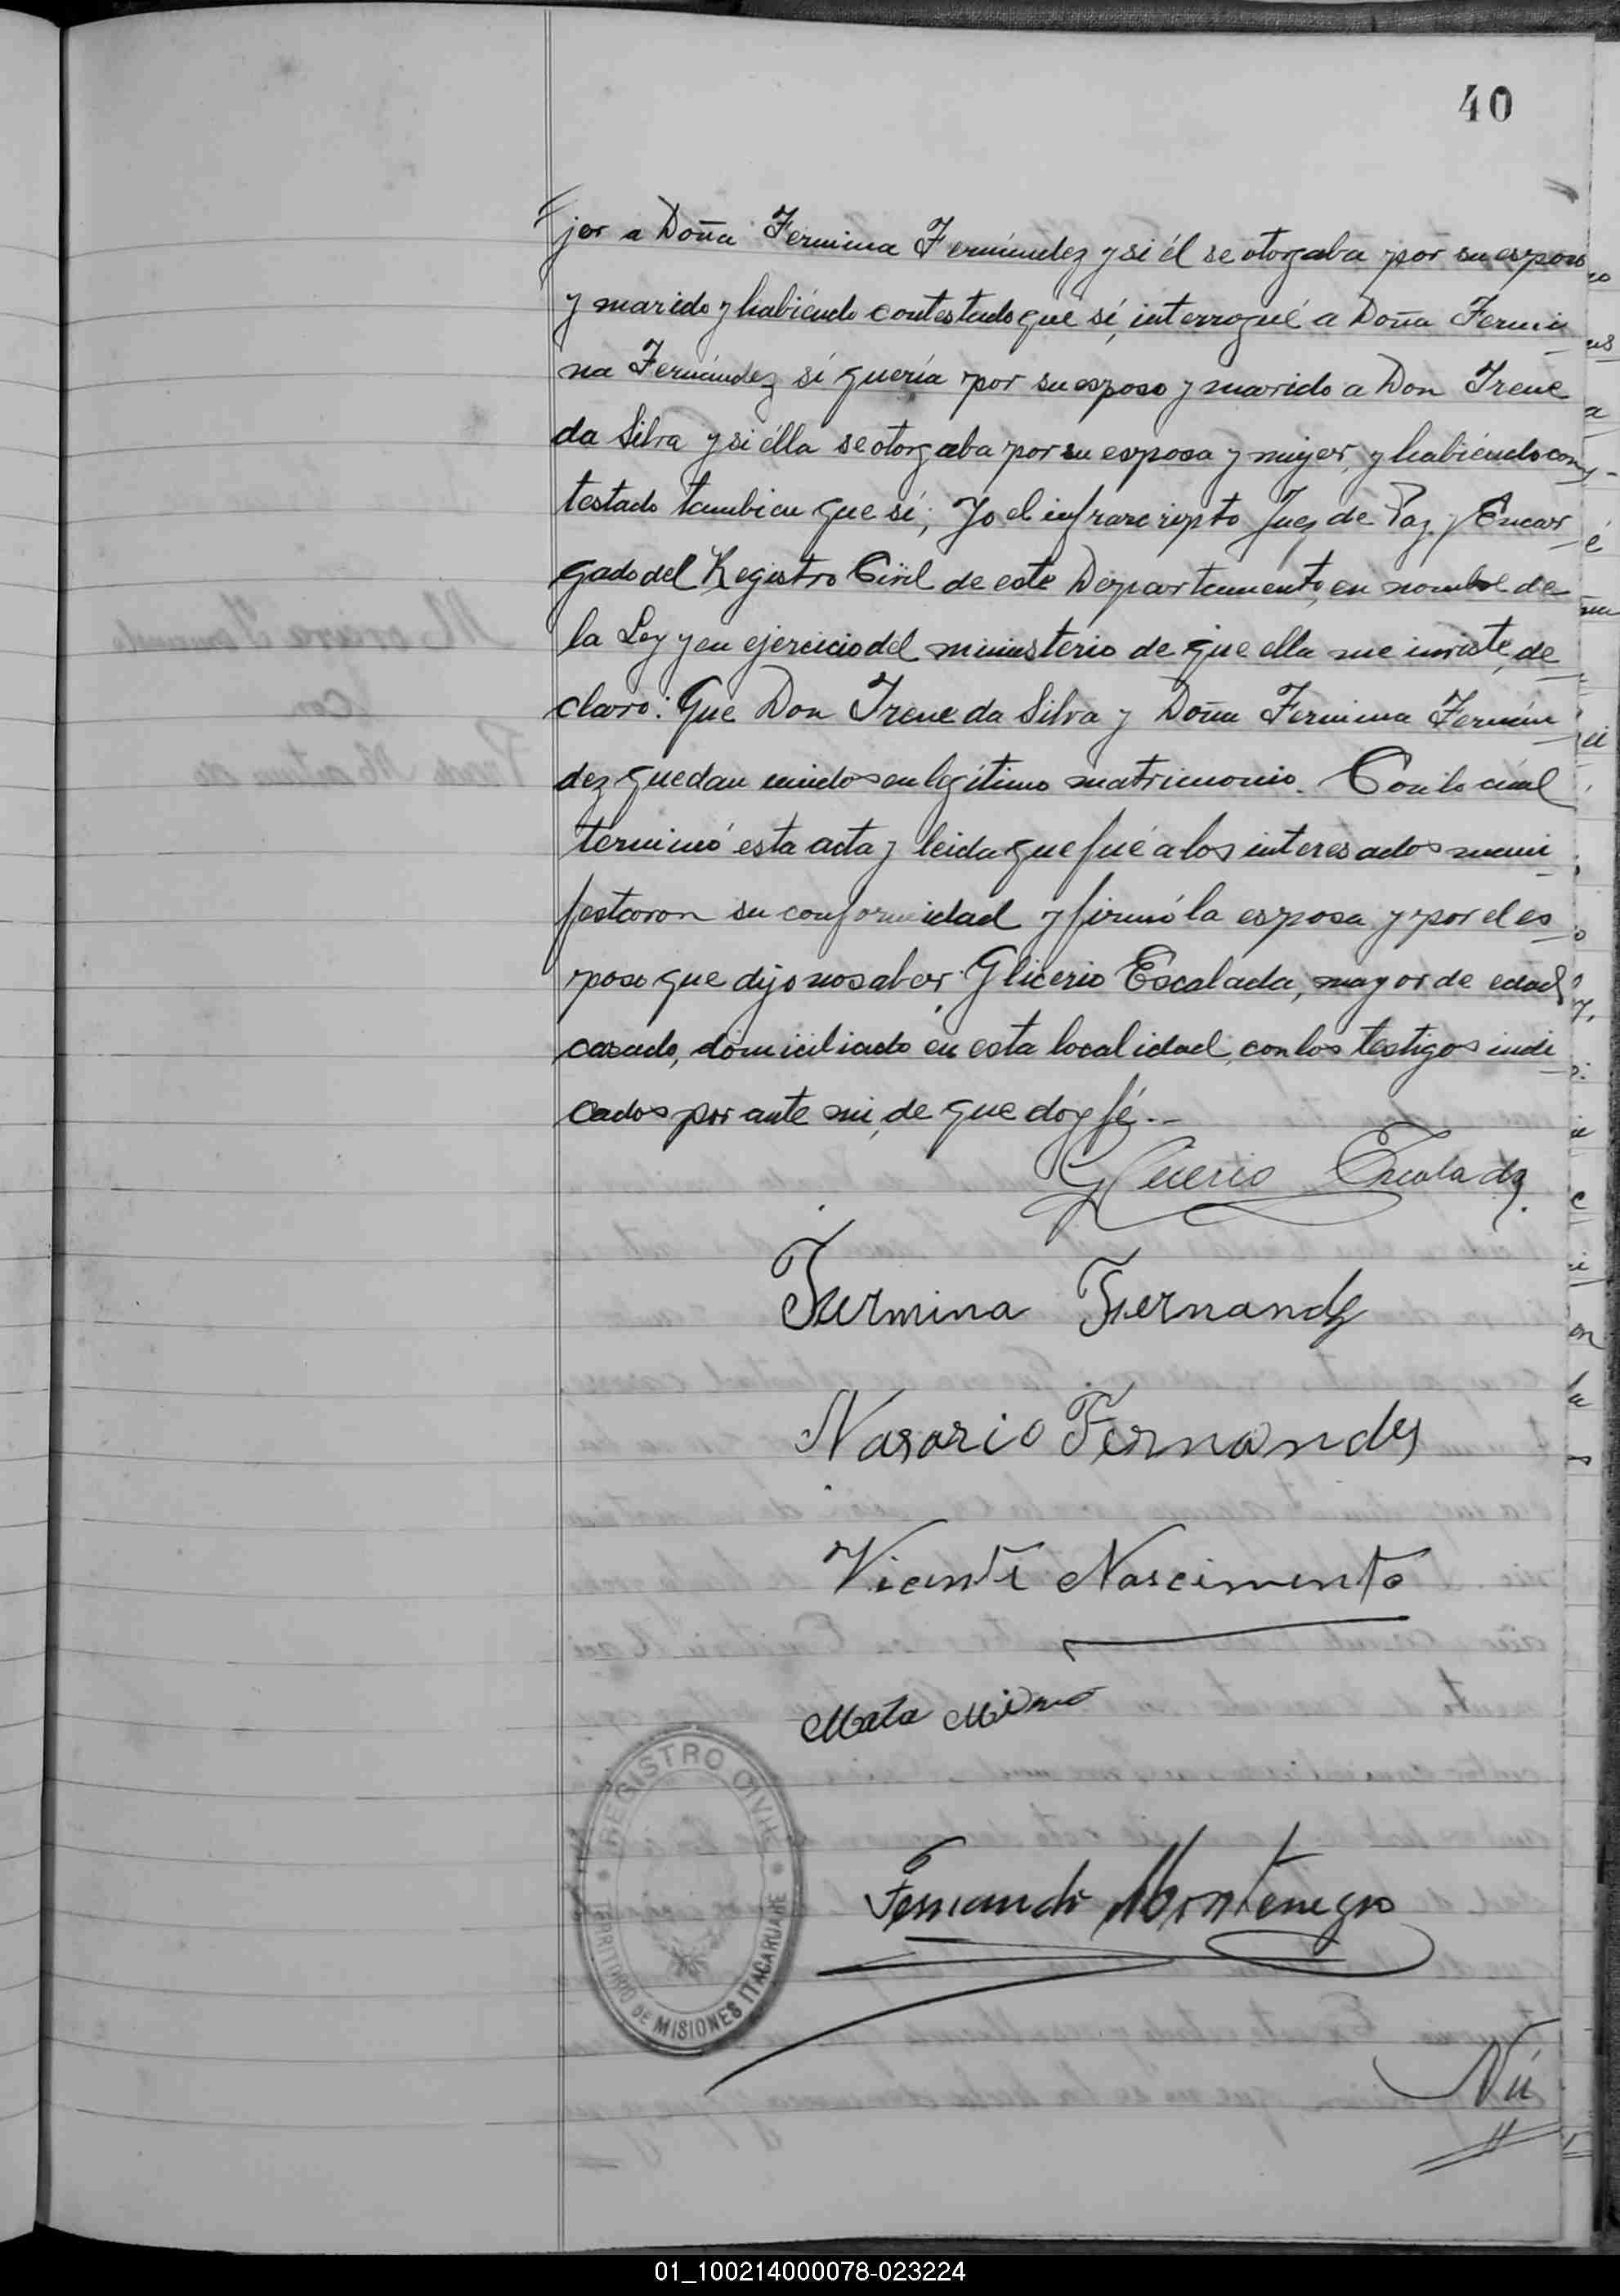 40
jer a Doña Fermina Fernández y si él se otorgaba por su esposo
y marido y habiendo contestado que sí, interrogué a Doña Fermi
na Fernández si quería por su esposo y marido a Don Irene
da Silva y si élla se otorgaba por su esposa y mujer, y habiéndo con
testado tambien que sí; Yo el infrascripto Juez de Paz y Encar
gado del Registro Civil de este Departamento, en nombre de
la Ley y en ejercicio del ministerio de que ella me inviste, de
claro: Que Don Irene da Silva y Doña Fermina Fernán
dez quedan unidos en legítimo matrimonio. Con lo cuál
terminó esta acta y leida que fué a los interesados mani
festaron su conformidad y firmó la esposa y por el es
poso que dijo no saber Glicerio Escalada, mayor de edad
casado, domiciliado en esta localidad, con los testigos indi
cados por ante mi, de que doy fé.--
Glicerio Escalada
Fermina Fernandz
Nasario Fernandes
Vicente Nascimento
Mata
REGISTRO CIVIL
TERRITORIO DE MISIONES ITACARUARE
Fernando Montenegro
Nú
01_100214000078-023224